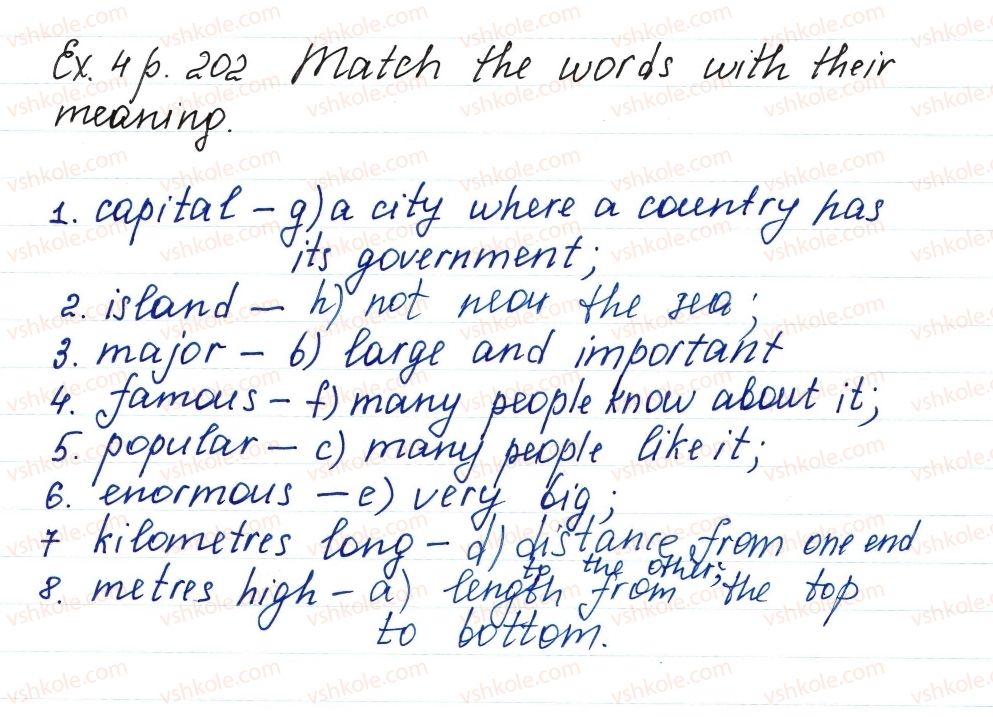 Ex. 4 p. 202 Match the words with their
meaning.
1. capital – g) a city where a country has
its government;
2. island – h) not near the sea;
3. major – b) large and important
4. famous – f) many people know about it;
5. popular – c) many people like it;
6. enormous – e) very big;
7 kilometres long – d) distance from one end
to the other;
8. metres high – a) length from the top
to bottom.